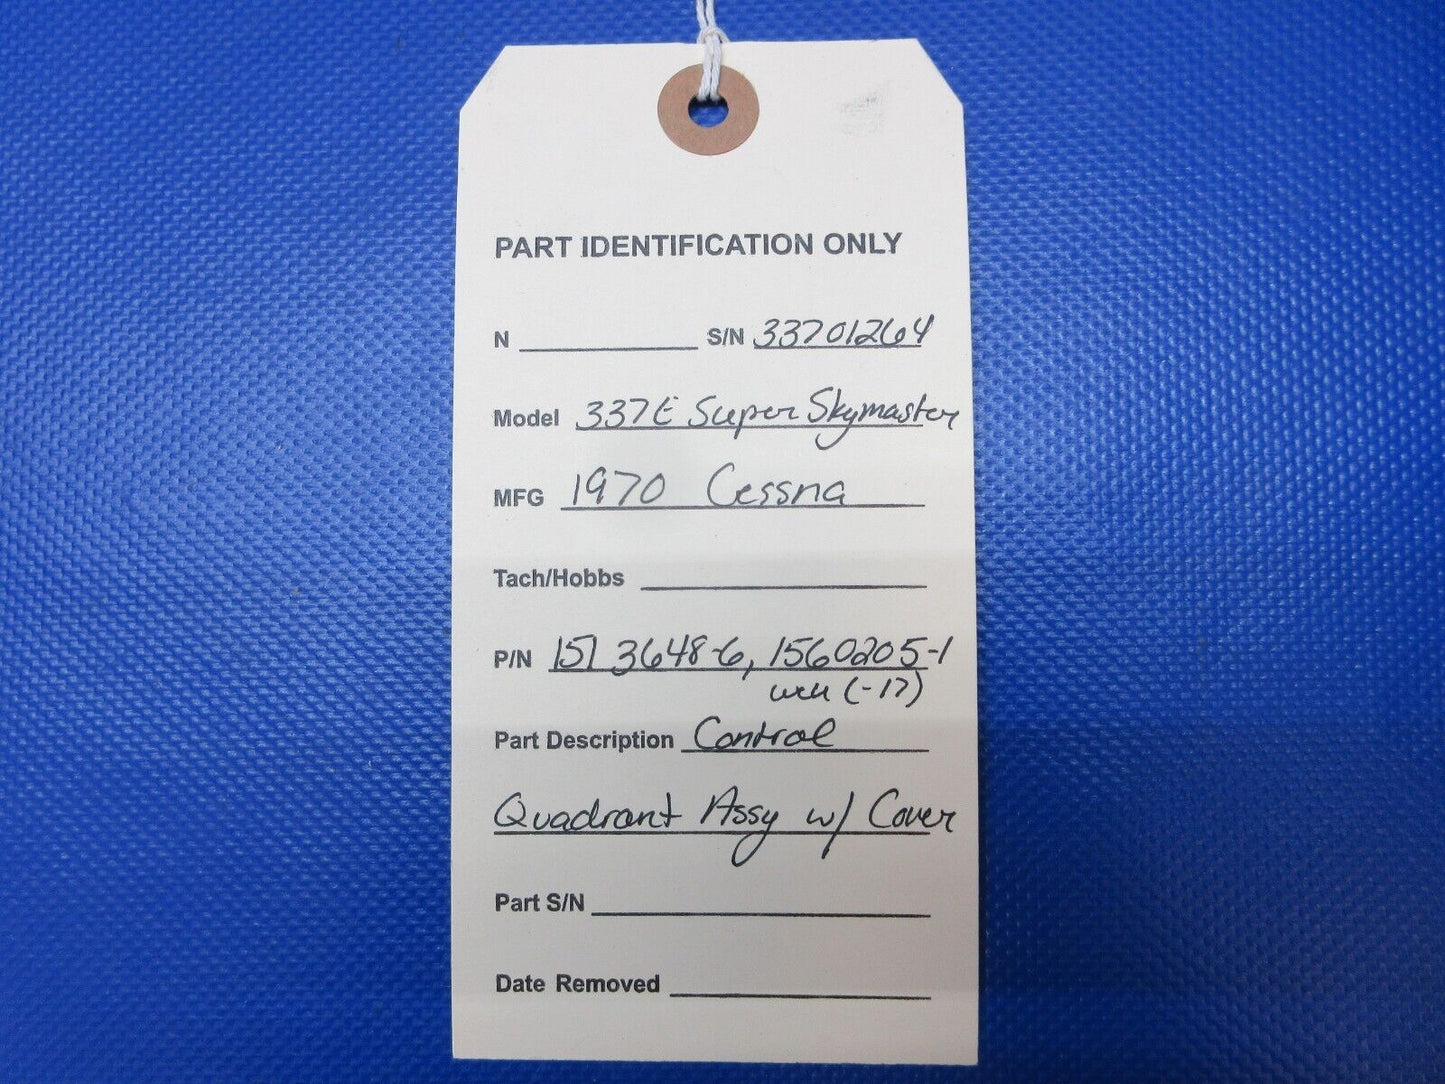 PART IDENTIFICATION ONLY
N S/N 33701264
Model 337E Super Skymaster
MFG 1970 Cessna
Tach/Hobbs
P/N 1513648-6, 1560205-1
(-17)
Part Description Control
Quadrant Assy w/ Cover
Part S/N
Date Removed